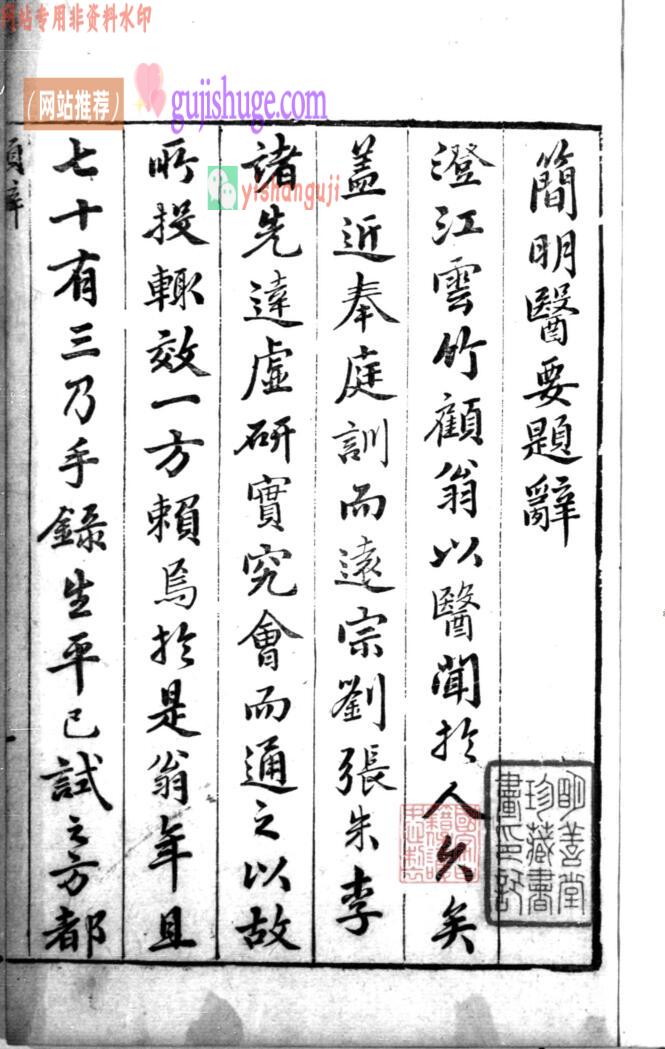 网站专用非资料水印
（网站推荐）
gujishuge.com
yishanguji
簡明醫要題辭
澄江雲竹顧翁以醫聞扵人久矣
蓋近奉庭訓而遠宗劉張朱李
諸先達虛研實究會而通之以故
所投輙效一方賴焉扵是翁年且
七十有三乃手錄生平已試之方都
明善堂
珍藏書
畫印記